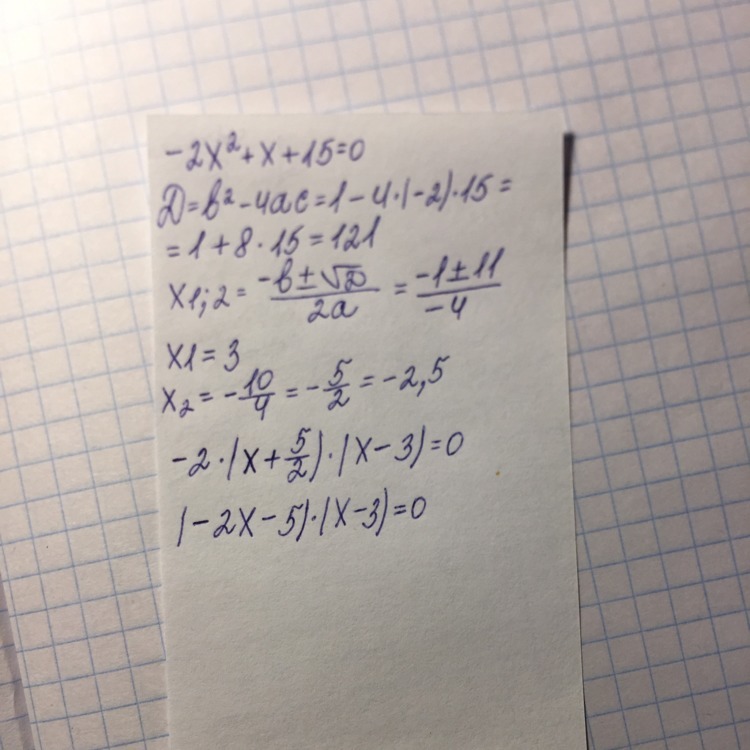 -2x²+x+15=0
D=b²-4ac=1-4·(-2)·15=
=1+8·15=121
x1;2=(-b±√D)/(2a)=(-1±11)/(-4)
x1=3
x₂=-10/4=-5/2=-2,5
-2·(x+5/2)·(x-3)=0
(-2x-5)·(x-3)=0